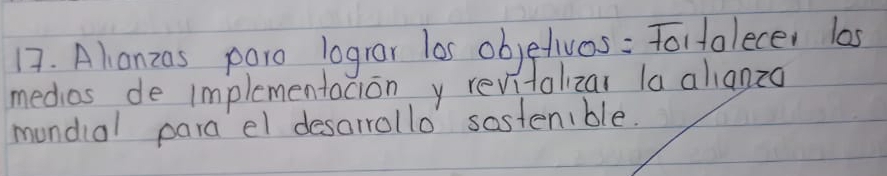 17. Alianzas para lograr los objetivos: Fortalecer los
medios de implementación y revitalizar la alianza
mundial para el desarrollo sostenible.